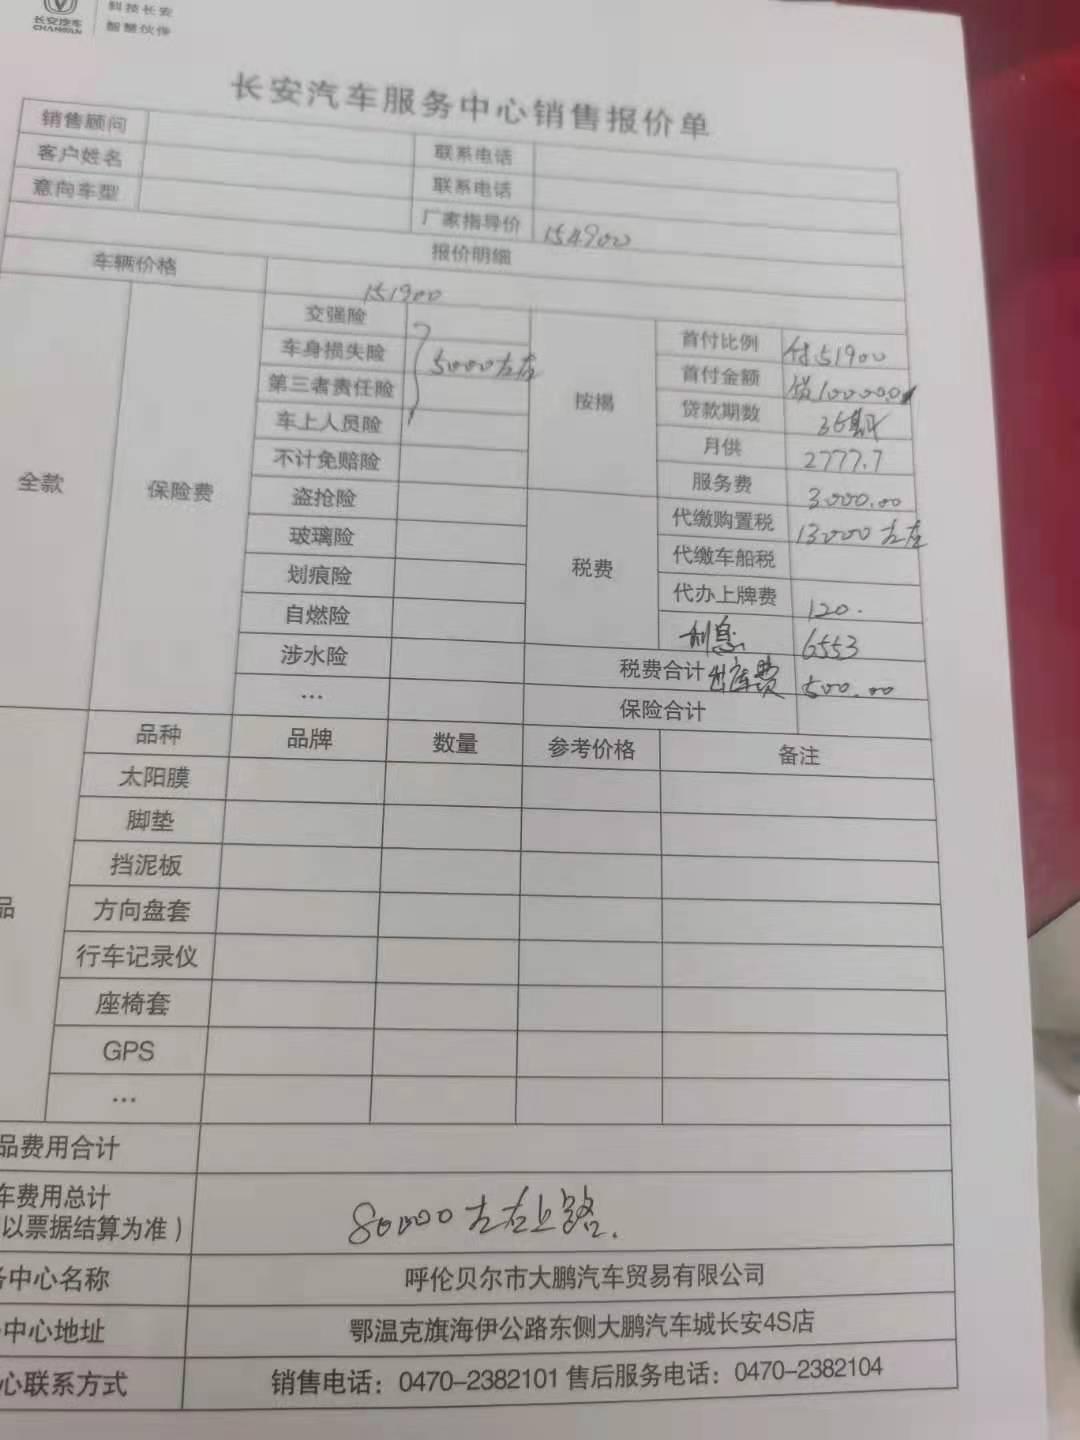 长安汽车 科技长安
CHANGAN 智慧伙伴
长安汽车服务中心销售报价单
销售顾问 联系电话
客户姓名 联系电话
意向车型 厂家指导价 154900
报价明细
车辆价格 151900
全款 保险费
交强险
车身损失险 5000左右
第三者责任险
车上人员险
不计免赔险
盗抢险
玻璃险
划痕险
自燃险
涉水险
...
按揭
首付比例 付51900
首付金额 贷100000
贷款期数 36期
月供 2777.7
服务费 3000.00
税费
代缴购置税 13000左右
代缴车船税
代办上牌费 120.
利息 6553
税费合计 出库费 500.00
保险合计
品种 品牌 数量 参考价格 备注
太阳膜
脚垫
挡泥板
品 方向盘套
行车记录仪
座椅套
GPS
...
品费用合计
车费用总计
以票据结算为准） 80000左右上路.
务中心名称 呼伦贝尔市大鹏汽车贸易有限公司
中心地址 鄂温克旗海伊公路东侧大鹏汽车城长安4S店
心联系方式 销售电话：0470-2382101 售后服务电话：0470-2382104